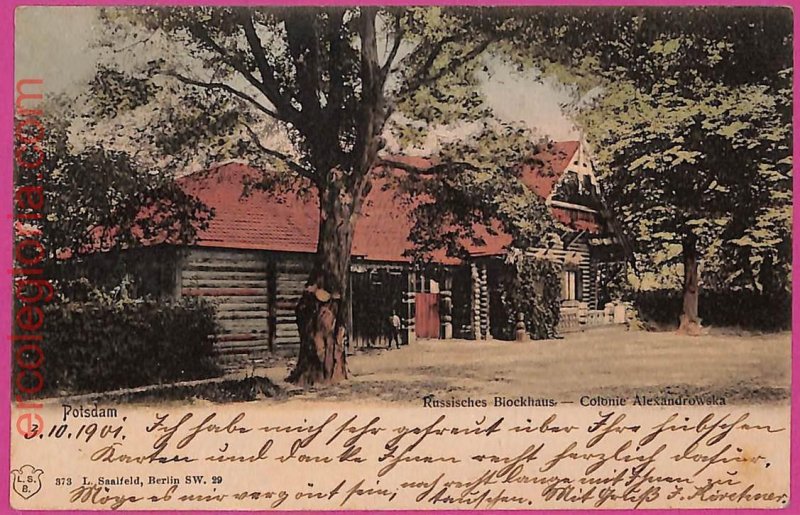 ercolegloria.com
Potsdam
Russisches Blockhaus. — Colonie Alexandrowska
3.10.1901. Ich habe mich sehr gefreut über Ihre hübschen
Karten und danke Ihnen recht herzlich dafür.
L.S.
B.
373 L. Saalfeld, Berlin SW. 29
Möge es mir vergönnt sein, noch recht lange mit Ihnen zu
tauschen. Mit Gruß J. Kirchner.